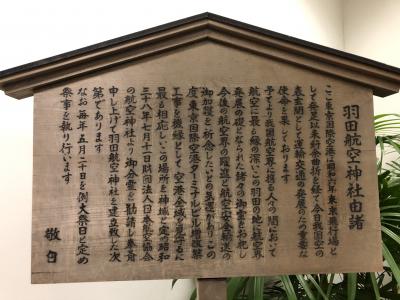 羽田航空神社由緒
ここ東京国際空港は昭和六年東京飛行場と
して発足以来紆余曲折を経て今日我国空の
表玄関として運輸交通の発展のため重要な
使命を果しております
予てより我国航空界に携る人々の間において
航空に最も縁の深いこの羽田の地に航空界
発展の礎となられた諸々の御霊をお祀し
今後の航空界の躍進と航空安全輸送の
御加護を祈念したいとの気運があり
度東京国際空港ターミナルビル増改築
工事を機縁として空港全域を見守るに
最も相応しいこの場所を神域と定め昭和
三十八年七月十二日財団法人日本航空協会
の航空神社より御分霊を勧請し奉斎
申し上げて羽田航空神社を建立致した次
第であります
なお毎年五月二十日を例大祭日と定め
祭事を執り行います
敬白